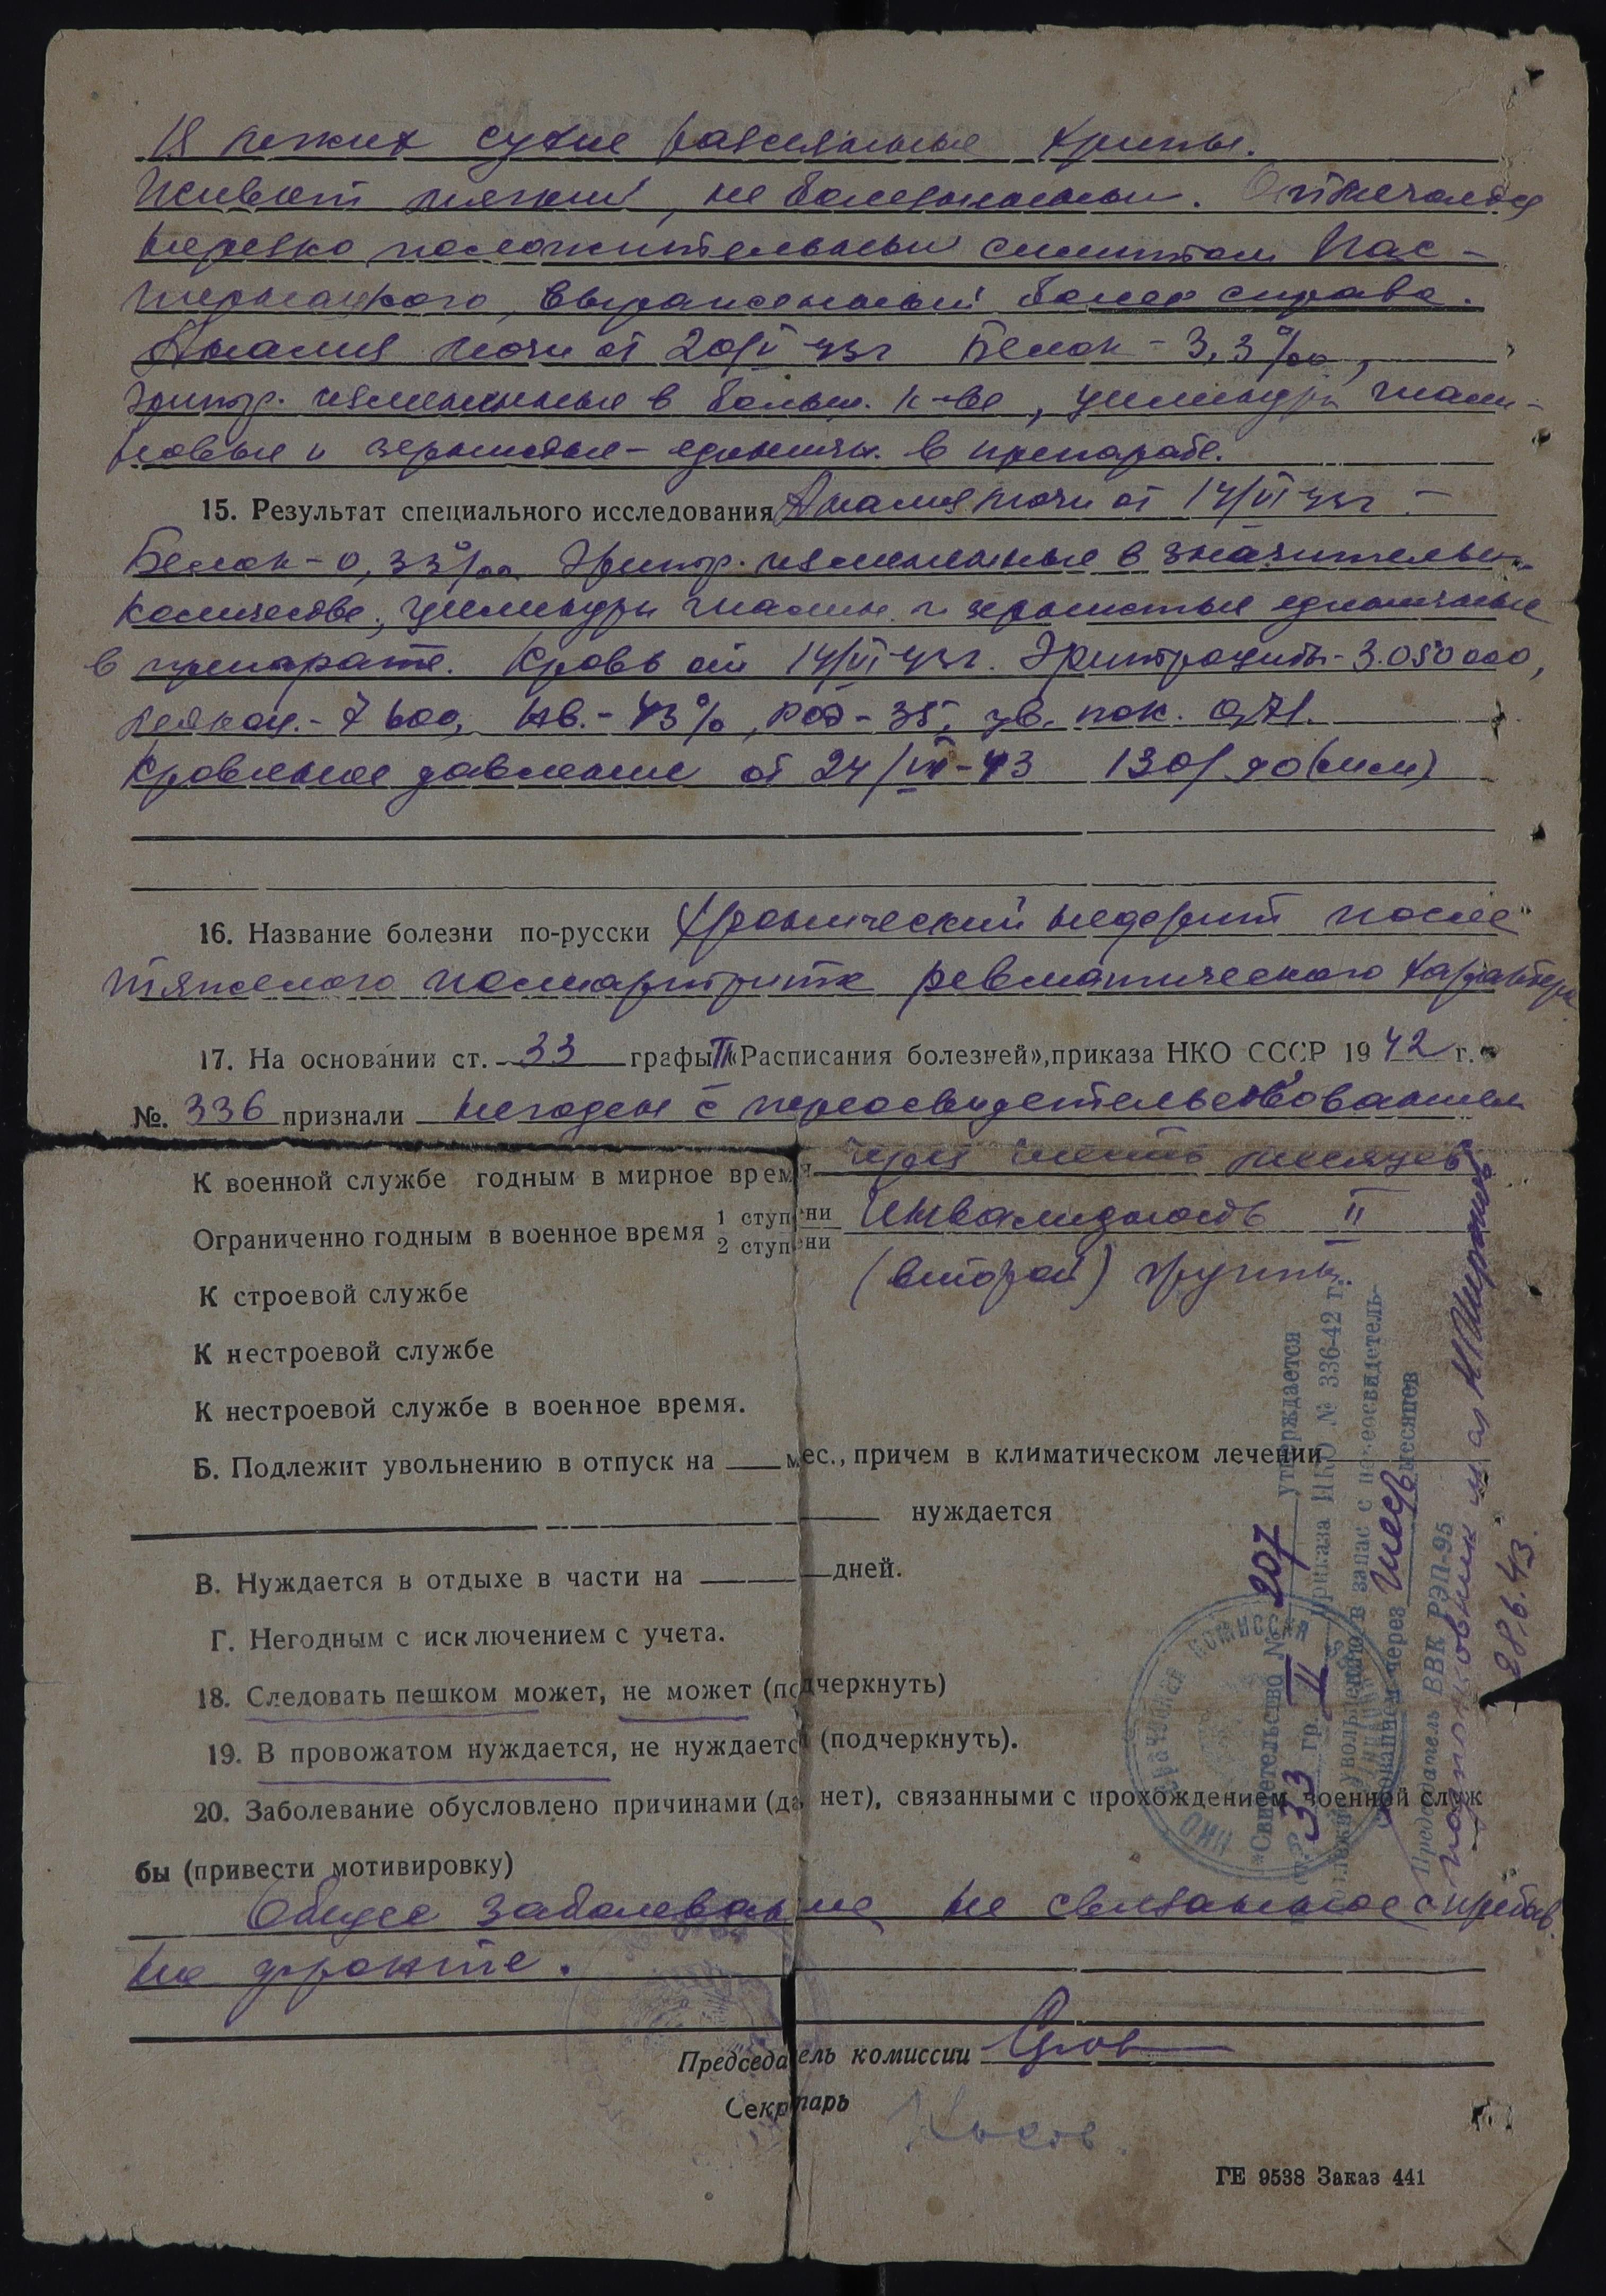 В легких сухие рассеянные хрипы.
Живот мягкий, не болезненный. Отмечался
нерезко положительный симптом Пас-
тернацкого, выраженный более справа.
Анализ мочи от 20/V 43г Белок – 3,3‰,
Эритр. измененные в больш. к-ве, цилиндры гиали-
новые и зернистые – единичн. в препарате.
15. Результат специального исследования Анализ мочи от 14/VI 43г –
Белок – 0,33‰ Эритр. измененные в значительн.
количестве, цилиндры гиалин. и зернистые единичные
в препарате. Кровь от 14/VI-43г. Эритроциты – 3.050000,
лейкоц. – 7600, Нв. – 43%, РОЭ – 35, цв. пок. 0,71.
Кровяное давление от 24/VI-43 130/90 (мм)
16. Название болезни по-русски Хронический нефрит после
тяжелого полиартрита ревматического характера
17. На основании ст. 33 графы II «Расписания болезней», приказа НКО СССР 1942 г.
№. 336 признали Негоден с переосвидетельствованием
К военной службе годным в мирное время через шесть месяцев
Ограниченно годным в военное время 1 ступени 2 ступени Инвалидность II
(второй) группы.
К строевой службе
К нестроевой службе
К нестроевой службе в военное время.
Б. Подлежит увольнению в отпуск на мес., причем в климатическом лечении
нуждается
В. Нуждается в отдыхе в части на дней.
Г. Негодным с исключением с учета.
18. Следовать пешком может, не может (подчеркнуть)
19. В провожатом нуждается, не нуждается (подчеркнуть).
20. Заболевание обусловлено причинами (да, нет), связанными с прохождением военной служ
бы (привести мотивировку)
Общее заболевание, не связанное с пребыв.
на фронте.
Председатель комиссии
Секретарь
ГЕ 9538 Заказ 441
"Свидетельство № 207 утверждается
ст. 33 гр. II приказа НКО № 336-42 г.
увольнению в запас с переосвидетель-
ствованием через шесть месяцев
Председатель ВВК РЭП-95
подполковник
28.6.43.
НКО врачебная комиссия